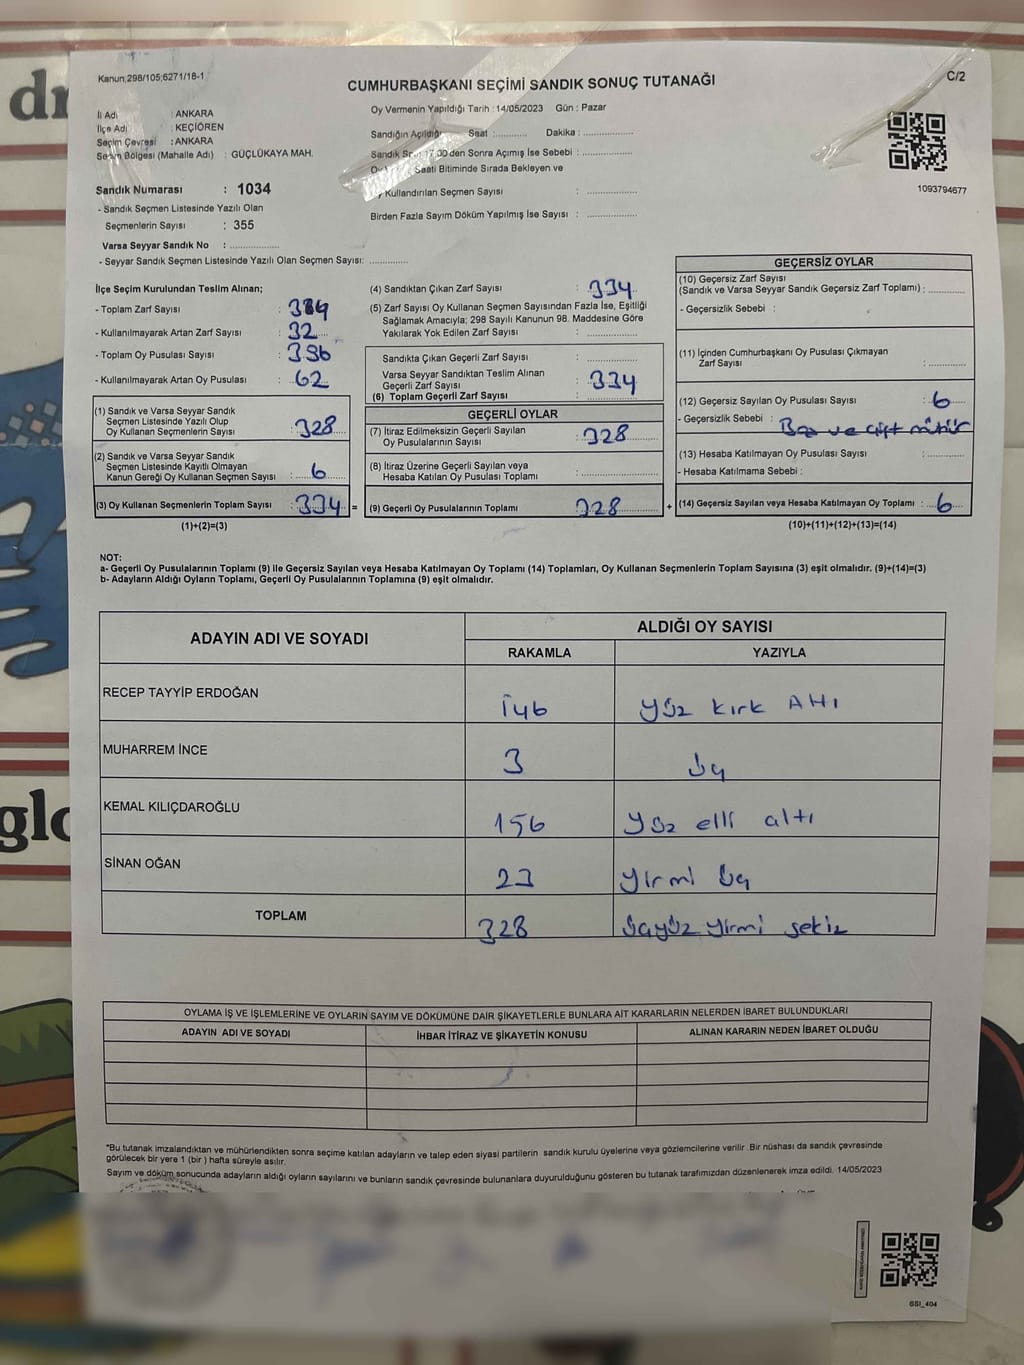 dr
glo
Kanun;298/105;6271/18-1
C/2
CUMHURBAŞKANI SEÇİMİ SANDIK SONUÇ TUTANAĞI
İl Adı : ANKARA
İlçe Adı : KEÇİÖREN
Seçim Çevresi : ANKARA
Seçim Bölgesi (Mahalle Adı) : GÜÇLÜKAYA MAH.
Sandık Numarası : 1034
- Sandık Seçmen Listesinde Yazılı Olan
Seçmenlerin Sayısı : 355
Varsa Seyyar Sandık No : ..............
- Seyyar Sandık Seçmen Listesinde Yazılı Olan Seçmen Sayısı: ............
Oy Vermenin Yapıldığı Tarih : 14/05/2023 Gün : Pazar
Sandığın Açıldığı Saat : ........... Dakika : ................
Sandık 17.00 den Sonra Açımış İse Sebebi : ................
Saati Bitiminde Sırada Bekleyen ve
Oy Kullandırılan Seçmen Sayısı : ................
Birden Fazla Sayım Döküm Yapılmış İse Sayısı : ................
1093794677
İlçe Seçim Kurulundan Teslim Alınan;
- Toplam Zarf Sayısı :
- Kullanılmayarak Artan Zarf Sayısı : 32
- Toplam Oy Pusulası Sayısı :
- Kullanılmayarak Artan Oy Pusulası : 62
(1) Sandık ve Varsa Seyyar Sandık
Seçmen Listesinde Yazılı Olup
Oy Kullanan Seçmenlerin Sayısı : 328
(2) Sandık ve Varsa Seyyar Sandık
Seçmen Listesinde Kayıtlı Olmayan
Kanun Gereği Oy Kullanan Seçmen Sayısı : 6
(3) Oy Kullanan Seçmenlerin Toplam Sayısı : 334 =
(1)+(2)=(3)
(4) Sandıktan Çıkan Zarf Sayısı : 334
(5) Zarf Sayısı Oy Kullanan Seçmen Sayısından Fazla İse, Eşitliği
Sağlamak Amacıyla; 298 Sayılı Kanunun 98. Maddesine Göre
Yakılarak Yok Edilen Zarf Sayısı : ................
Sandıkta Çıkan Geçerli Zarf Sayısı : ................
Varsa Seyyar Sandıktan Teslim Alınan
Geçerli Zarf Sayısı : 334
(6) Toplam Geçerli Zarf Sayısı : ................
GEÇERLİ OYLAR
(7) İtiraz Edilmeksizin Geçerli Sayılan
Oy Pusulalarının Sayısı : 328
(8) İtiraz Üzerine Geçerli Sayılan veya
Hesaba Katılan Oy Pusulası Toplamı : ................
(9) Geçerli Oy Pusulalarının Toplamı : 328 +
GEÇERSİZ OYLAR
(10) Geçersiz Zarf Sayısı
(Sandık ve Varsa Seyyar Sandık Geçersiz Zarf Toplamı) : ............
- Geçersizlik Sebebi :
(11) İçinden Cumhurbaşkanı Oy Pusulası Çıkmayan
Zarf Sayısı : ............
(12) Geçersiz Sayılan Oy Pusulası Sayısı : 6
- Geçersizlik Sebebi : Boş ve çift mühür
(13) Hesaba Katılmayan Oy Pusulası Sayısı : ............
- Hesaba Katılmama Sebebi :
(14) Geçersiz Sayılan veya Hesaba Katılmayan Oy Toplamı : 6
(10)+(11)+(12)+(13)=(14)
NOT:
a- Geçerli Oy Pusulalarının Toplamı (9) ile Geçersiz Sayılan veya Hesaba Katılmayan Oy Toplamı (14) Toplamları, Oy Kullanan Seçmenlerin Toplam Sayısına (3) eşit olmalıdır. (9)+(14)=(3)
b- Adayların Aldığı Oyların Toplamı, Geçerli Oy Pusulalarının Toplamına (9) eşit olmalıdır.
ADAYIN ADI VE SOYADI
ALDIĞI OY SAYISI
RAKAMLA YAZIYLA
RECEP TAYYİP ERDOĞAN 146 yüz kırk Altı
MUHARREM İNCE 3 üç
KEMAL KILIÇDAROĞLU 156 yüz elli altı
SİNAN OĞAN 23 yirmi üç
TOPLAM 328 üçyüz yirmi sekiz
OYLAMA İŞ VE İŞLEMLERİNE VE OYLARIN SAYIM VE DÖKÜMÜNE DAİR ŞİKAYETLERLE BUNLARA AİT KARARLARIN NELERDEN İBARET BULUNDUKLARI
ADAYIN ADI VE SOYADI İHBAR İTİRAZ VE ŞİKAYETİN KONUSU ALINAN KARARIN NEDEN İBARET OLDUĞU
*Bu tutanak imzalandıktan ve mühürlendikten sonra seçime katılan adayların ve talep eden siyasi partilerin sandık kurulu üyelerine veya gözlemcilerine verilir .Bir nüshası da sandık çevresinde
görülecek bir yere 1 (bir ) hafta süreyle asılır.
Sayım ve döküm sonucunda adayların aldığı oyların sayılarını ve bunların sandık çevresinde bulunanlara duyurulduğunu gösteren bu tutanak tarafımızdan düzenlenerek imza edildi. 14/05/2023
SSI_404